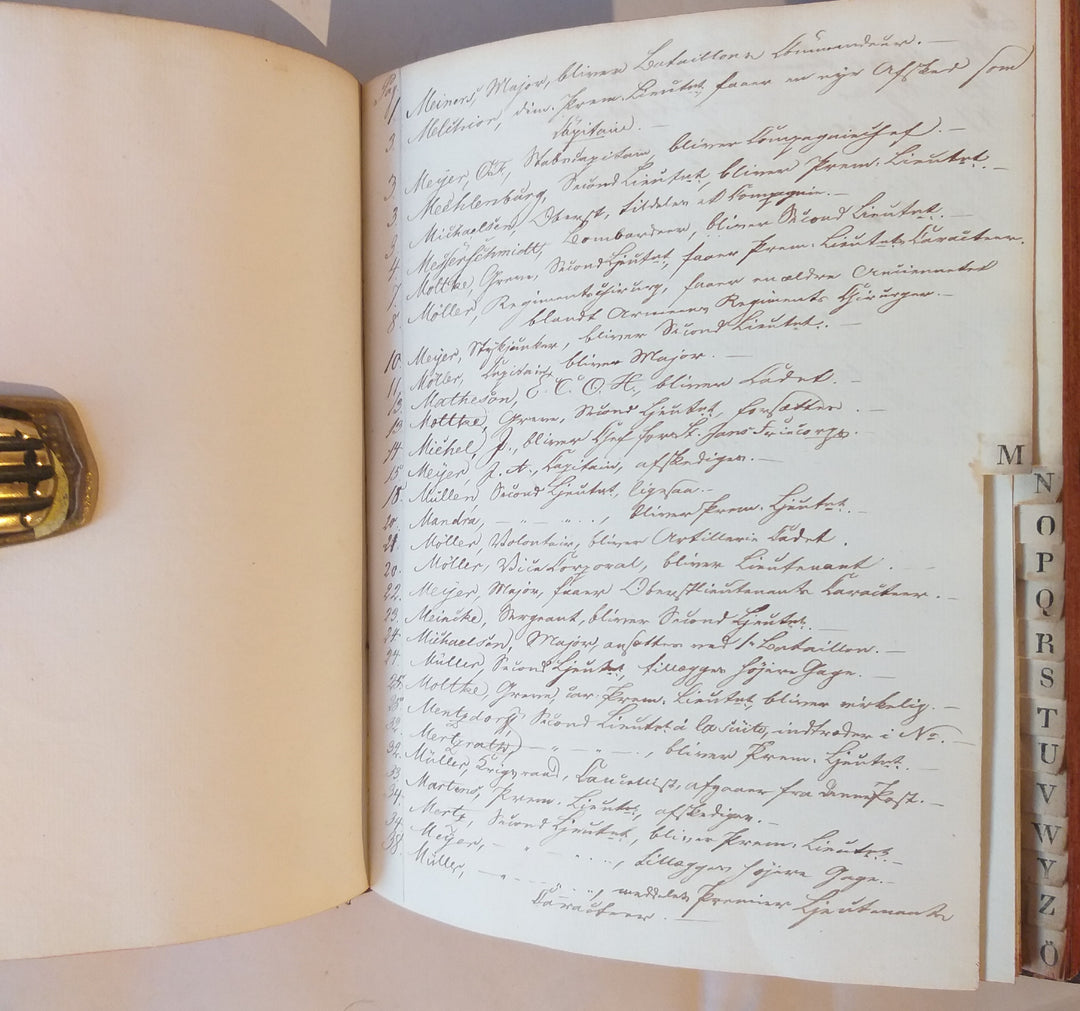 Pag.
1 Meiners, Major, bliver Bataillons Commandeur. —
3. Melchior, dim. Prem. Lieutnt, faaer en nye Afsked som
Capitain. —
3. Meyer, Stabscapitain, bliver Compagniechef. —
3. Mechlenburg, Second Lieutnt, bliver Prem. Lieutnt. —
3. Michaelsen, Oberst, tildeles et Compagnie. —
4. Messerschmidt, Bombardeer, bliver Second Lieutnt. —
7. Moltke, Greve, Second Ljeutnt, faaer Prem. Lieutnts Caracteer.
8. Möller, Regimentschirurg, faaer en ældre Anciennetet
blandt Armeens Regiments Chirurger. —
10. Meyer, Stykjunker, bliver Second Lieutnt. —
11. Möller, Capitain, bliver Major. —
13. Matheson, C. O. H., bliver Cadet. —
13 Moltke, Greve, Second Ljeutnt, forsættes. —
14 Michel, J., bliver Chef for Fricorps. —
15 Meyer, J. A., Capitain, afskediges. —
18. Müller, Second Ljeutnt, ligesaa. —
20. Mandra, — " — " ..., bliver Prem. Ljeutnt. —
21. Möller, Volontair, bliver Artillerie Cadet.
20. Möller, Vice Corporal, bliver Lieutenant. —
22. Meijer, Major, faaer Oberstlieutenants Caracteer. —
23. Meincke, Sergeant, bliver Second Ljeutnt. —
24. Michaelsen, Major, ansættes ved 1. Bataillon. —
24. Müller, Second Ljeutnt, tillægges höjere Gage. —
25. Moltke, Greve, car. Prem. Lieutnt, bliver virkelig. —
28. Mentzdorf, Second Lieutnt à la suite, indtræder i No. —
32. — " — " — ., bliver Prem. Ljeutnt. —
32. Müller, Krigsraad, Cancellist, afgaaer fra denne Post. —
33 Martens, Prem. Ljeutnt, afskediges. —
34. Mertz, Second Ljeutnt, bliver Prem. Lieutnt. —
34 Meyer, — " — " ..., tillægges höjere Gage. —
38. Müller, — " — " .., meddeles Premier Ljeutenants
Caracteer. —
M
N
O
P
Q
R
S
T
U
V
W
Y
Z
Ö